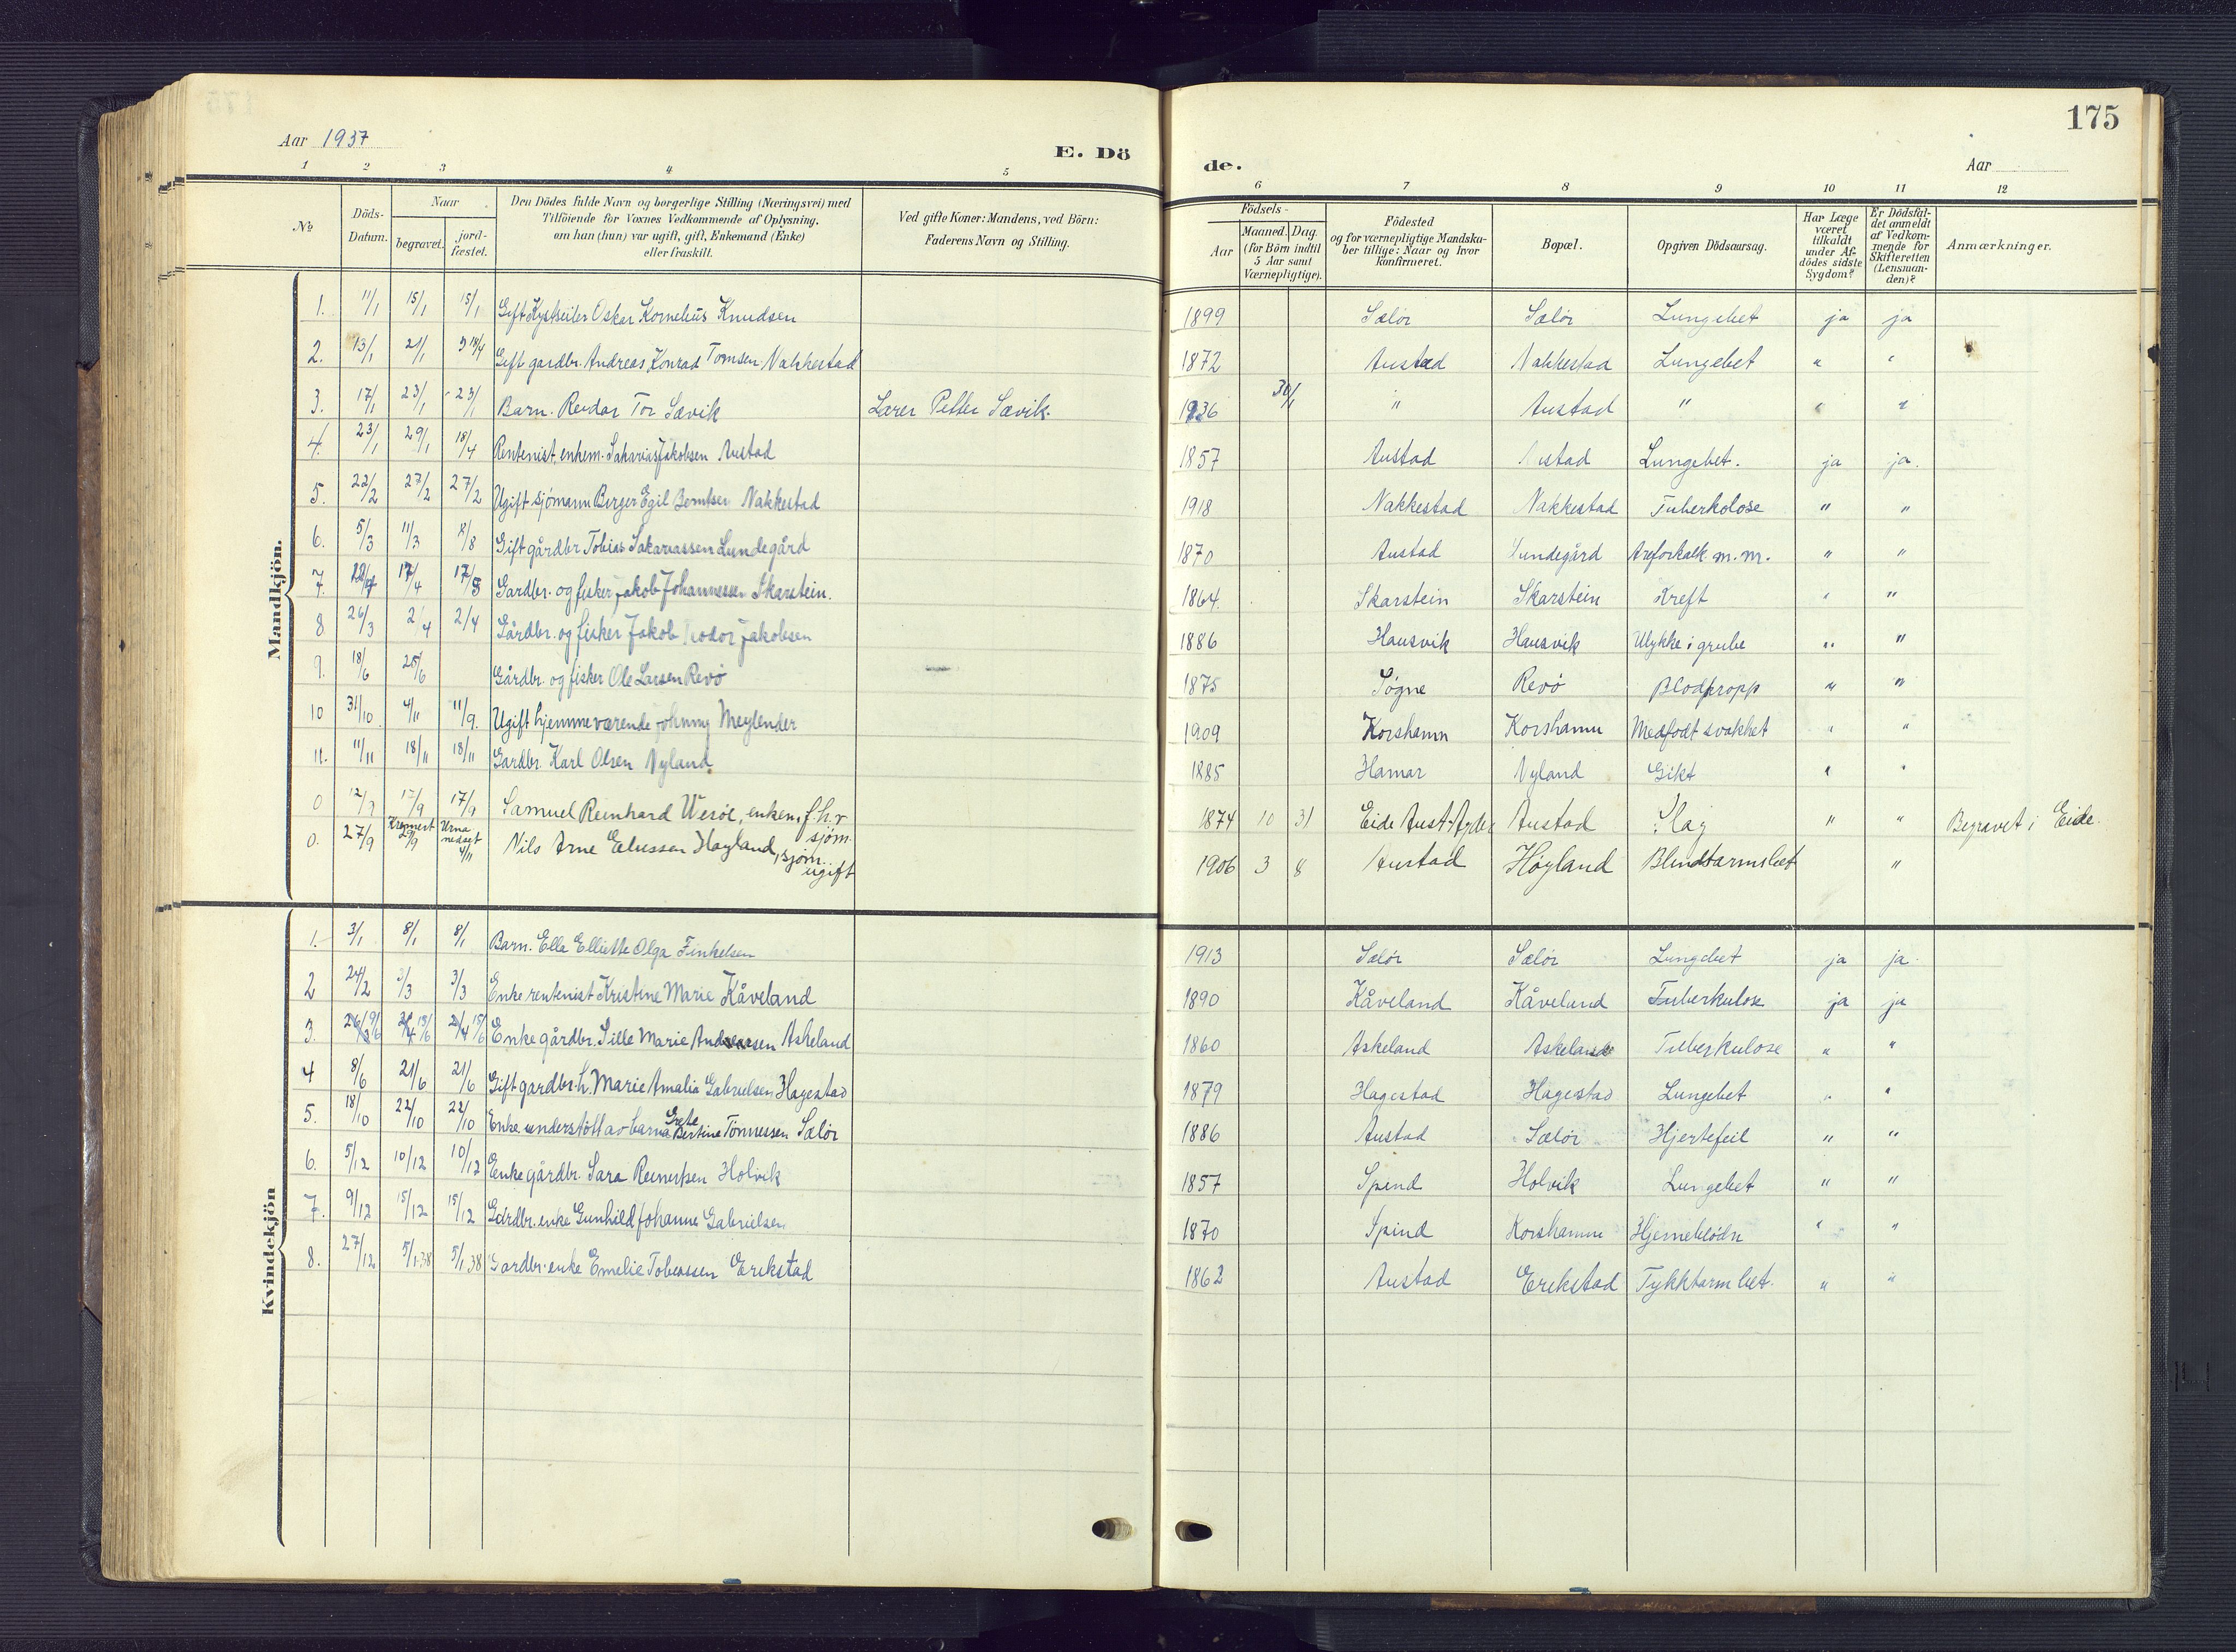 175
Aar 1937
E. Dö
de.
Aar
1 2 3 4 5
6 7 8 9 10 11 12
№
Döds-Datum.
Naar
begravet.
jord-fæstet.
Den Dödes fulde Navn og borgerlige Stilling (Næringsvei) med
Tilföiende for Voxnes Vedkommende af Oplysning,
om han (hun) var ugift, gift, Enkemand (Enke)
eller fraskilt.
Ved gifte Koner: Mandens, ved Börn:
Faderens Navn og Stilling.
Födsels-
Aar
Maaned. Dag.
(for Börn indtil
5 Aar samt
Værnepligtige).
Födested
og for værnepligtige Mandska-
ber tillige: Naar og hvor
konfirmeret.
Bopæl.
Opgiven Dödsaarsag.
Har Læge
været
tilkaldt
under Af-
dödes sidste
Sygdom?
Er Dödsfal-
det anmeldt
af Vedkom-
mende for
Skifteretten
(Lensman-
den)?
Anmærkninger.
Mandkjön.
1. 11/1 15/1 15/1 Gift Kystseiler Oskar Kornelius Knudsen 1899 Sælör Sælör Lungebet ja ja
2. 13/1 21/1 18/4 Gift gardbr. Andreas Konrad Tomsen Nakkestad 1872 Austad Nakkestad Lungebet " "
3. 17/1 23/1 23/1 Barn. Reidar Tor Sævik Lærer Petter Sævik. 1936 30/1 " Austad " " "
4. 23/1 29/1 18/4 Rentenist, enkem. Sakarias Jakobsen Austad 1857 Austad Austad Lungebet. ja ja.
5. 22/2 27/2 27/2 Ugift sjömann Berger Egil Berntsen Nakkestad 1918 Nakkestad Nakkestad Tuberkolose " "
6. 5/3 11/3 2/8 Gift gårdbr Tobias Sakariassen Lundegård 1870 Austad Lundegård Areforkalk. m.m. " "
7. 17/4 Gardbr. og fisker Jakob Johannessen Skarstein. 1864. Skarstein Skarstein Kreft " "
8 26/3 2/4 2/4 Gårdbr. og fisker Jakob Teodor Jakobsen 1886 Hausvik Hausvik Ulykke i grube " "
9. 18/6 25/6 Gårdbr. og fisker Ole Larsen Revö 1875 Sögne Revö Blodpropp " "
10 31/10 4/11 11/9. Ugift hjemmeværende Johnny Meylender 1909 Korshamn Korshamn Medfodt svakhet " "
11. 11/11 18/11 18/11 Gardbr. Karl Olsen Nyland 1885 Hamar Nyland Gikt " "
0 12/9 17/9 17/9 Samuel Reinhard Weröe, enkem, f.h.v sjöm. 1874 10 31 Eide Aust-Agder Austad Slag " " Begravet i Eide.
0. 27/9 Kremert 29/9 Urna nedsat 4/11 Nils Arne Eliessen Høyland, sjöm. ugift 1906 3 8 Austad Höyland Blindtarmsbet "
Kvindekjön
1. 3/1 8/1 8/1 Barn. Ella Elliette Olga Finkelsen 1913 Sælör Sælör Lungebet ja ja
2 24/2 3/3 3/3 Enke rentenist Kristine Marie Kåveland 1890 Kåveland Kåveland Tuberkulose ja ja
3. 9/6 15/6 15/6 Enke gårdbr. Sille Marie Andreassen Askeland 1860 Askeland Askeland Tuberkulose " "
4 8/6 21/6 21/6 Gift gardbr. h. Marie Amalia Gabrielsen Hagestad 1879 Hagestad Hagestad Lungebet " "
5. 18/10 22/10 22/10 Enke understött av barna Grete Bertine Tönnessen Sælör 1886 Austad Sælör Hjertefeil " "
6. 5/12 10/12 10/12 Enke gårdbr. Sara Reinertsen Holvik 1857 Spind Holvik Lungebet " "
7. 9/12 15/12 15/12 Gardbr. enke Gunhild Johanne Gabrielsen 1870 Spind Korshamn Hjerneblödn " "
8. 27/12 5/1.38 5/1.38 Gardbr. enke Emelie Tobiassen Erikstad 1862 Austad Erikstad Tykktarmbet. " "